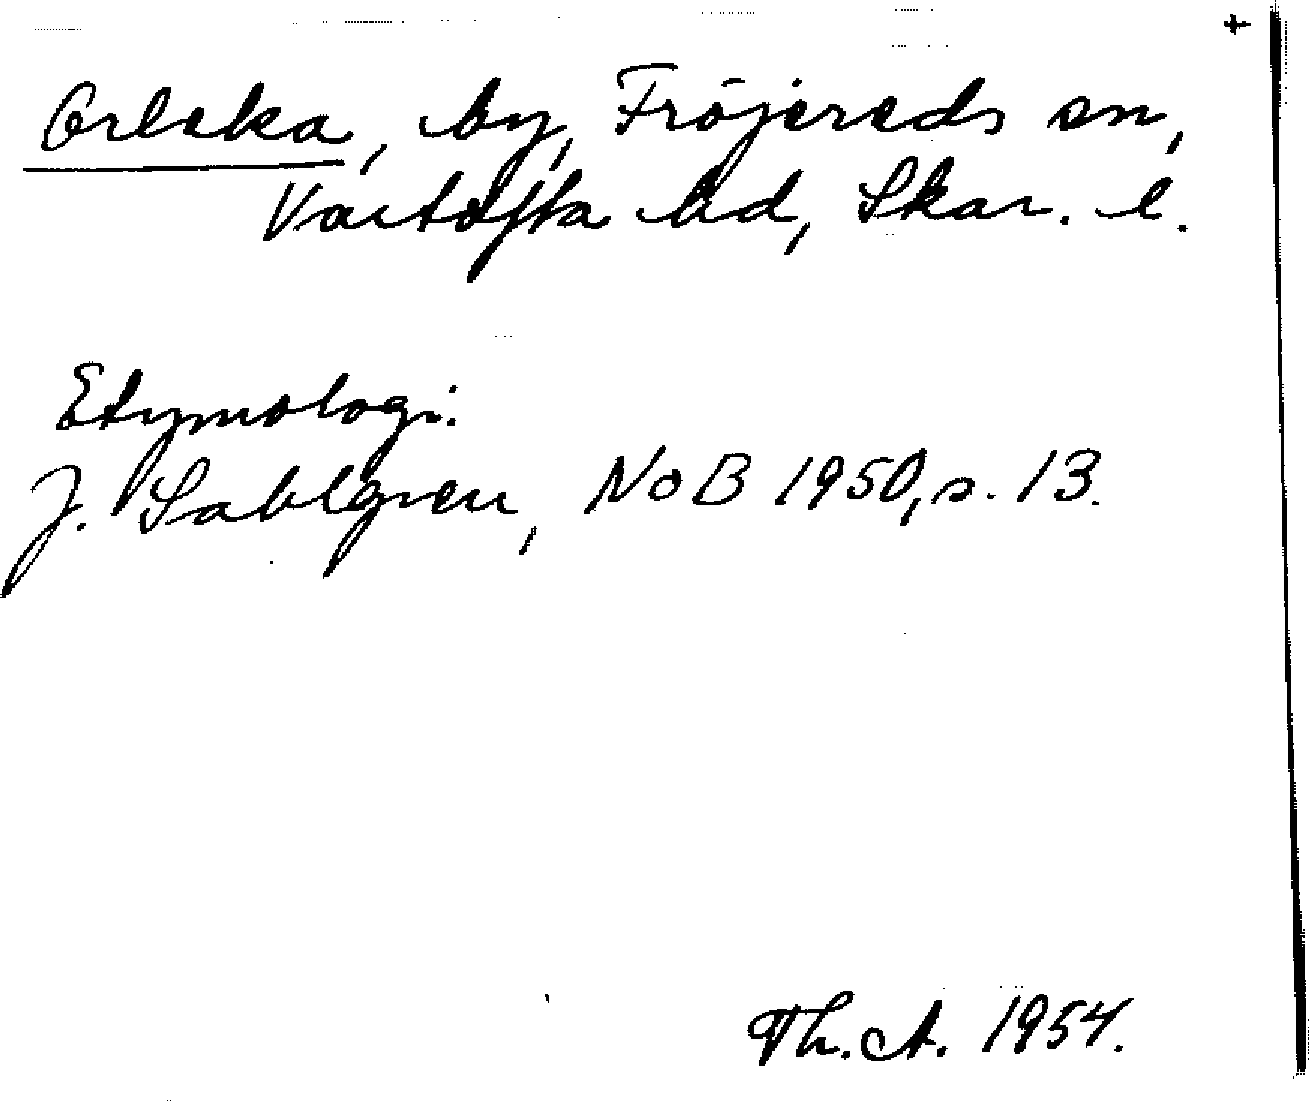 +
Orleka, by, Fröjereds sn,
Vartofta hd, Skar. l.
Etymologi:
J. Sahlgren, NoB 1950, s. 13.
Th. A. 1954.